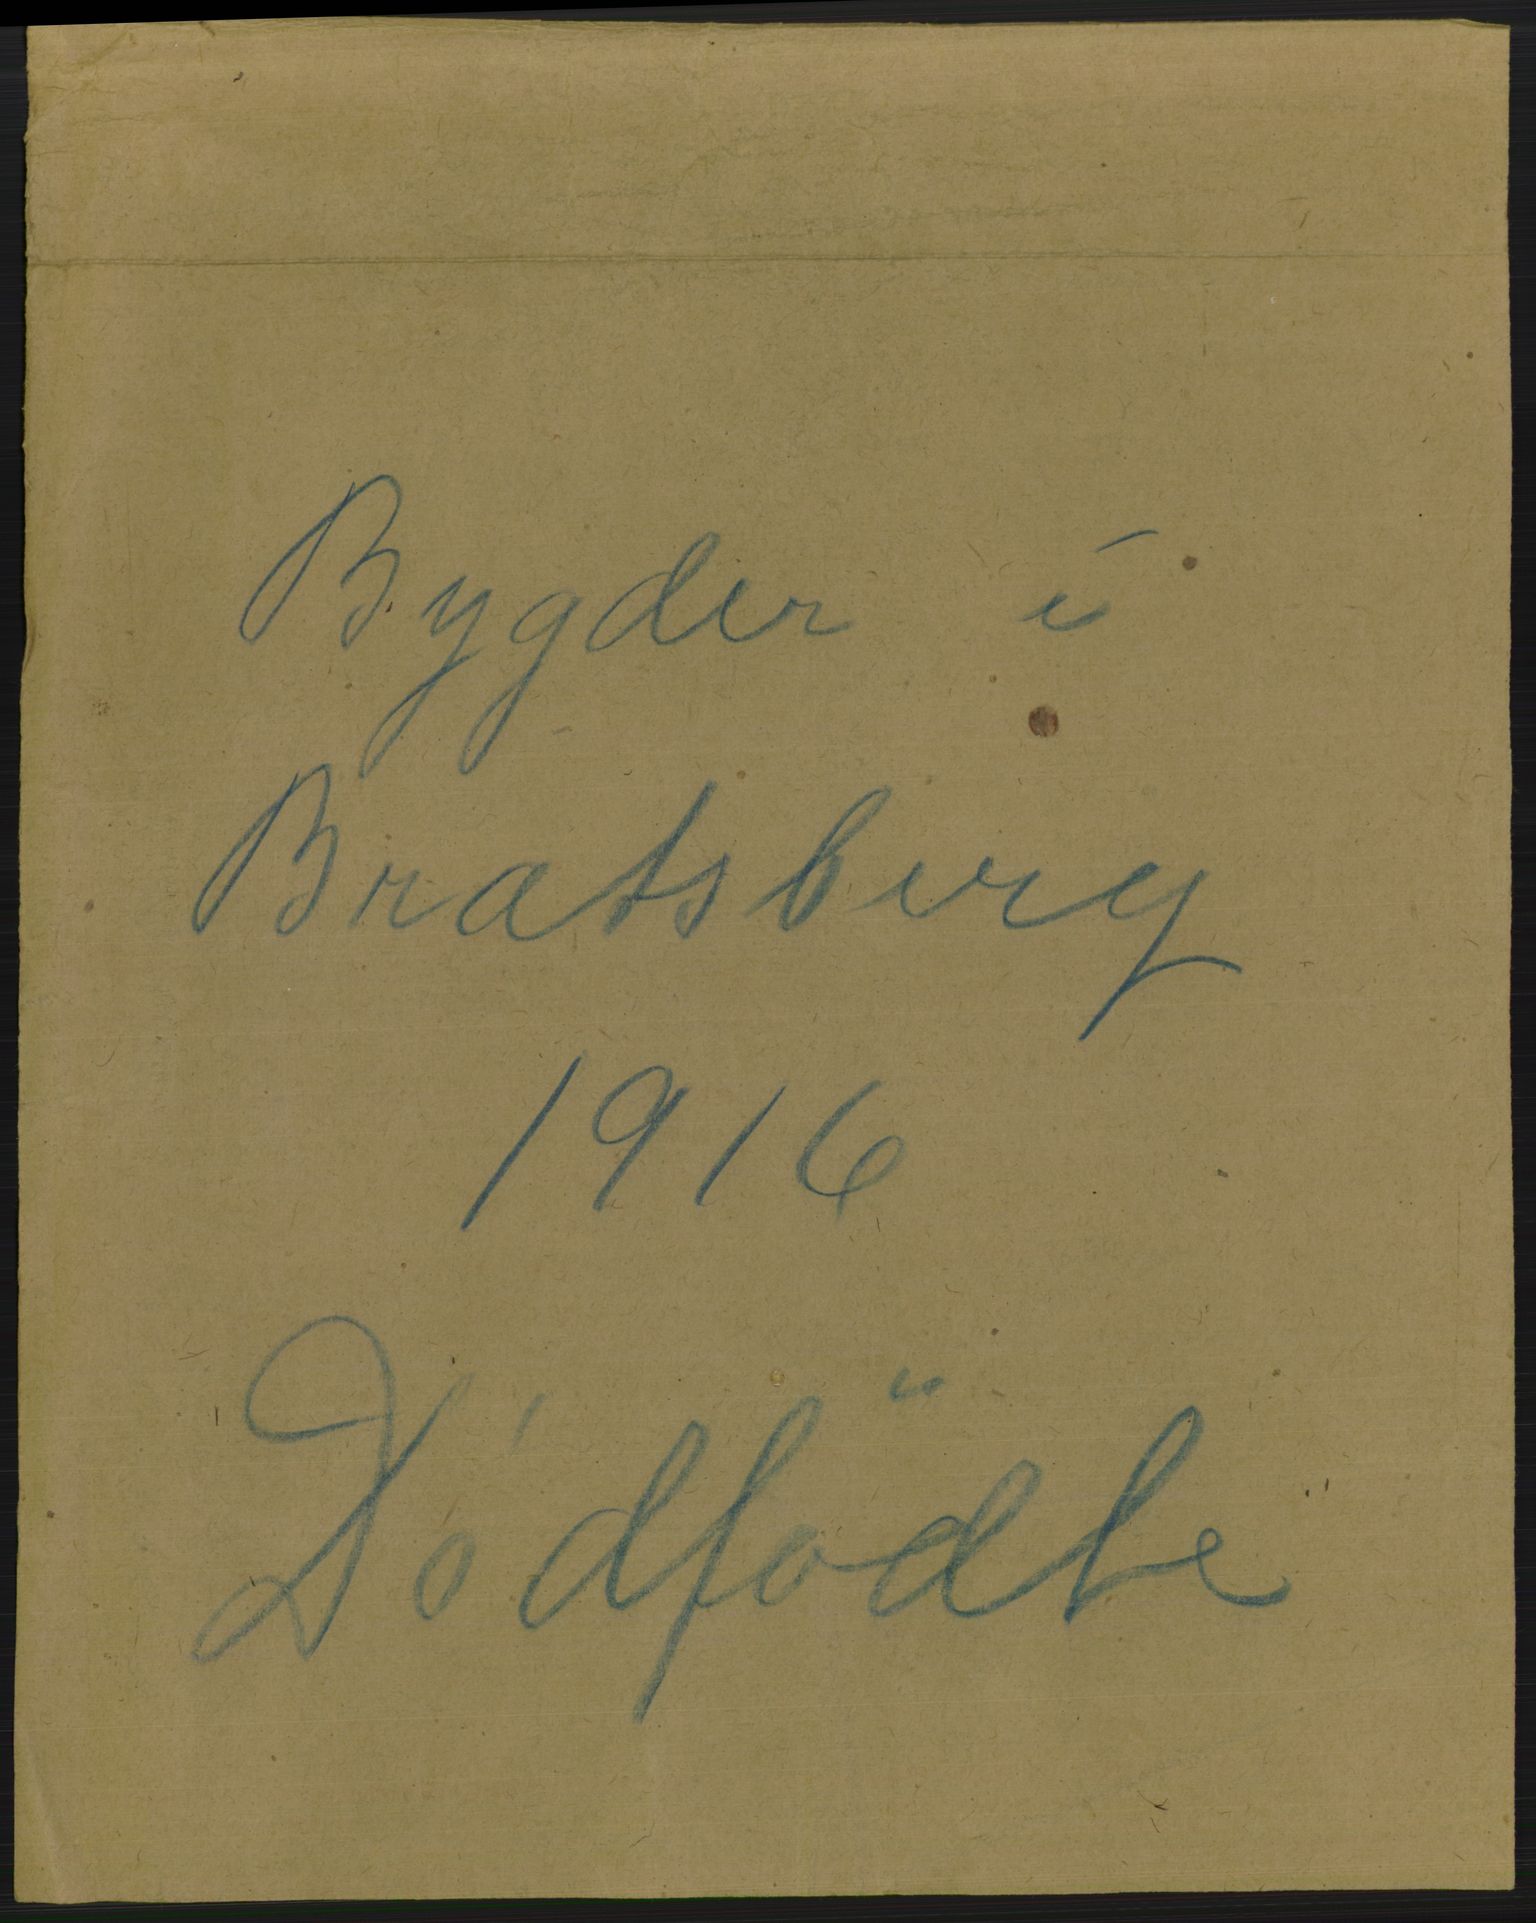 Bygder i
Bratsberg
1916
Dödfödte